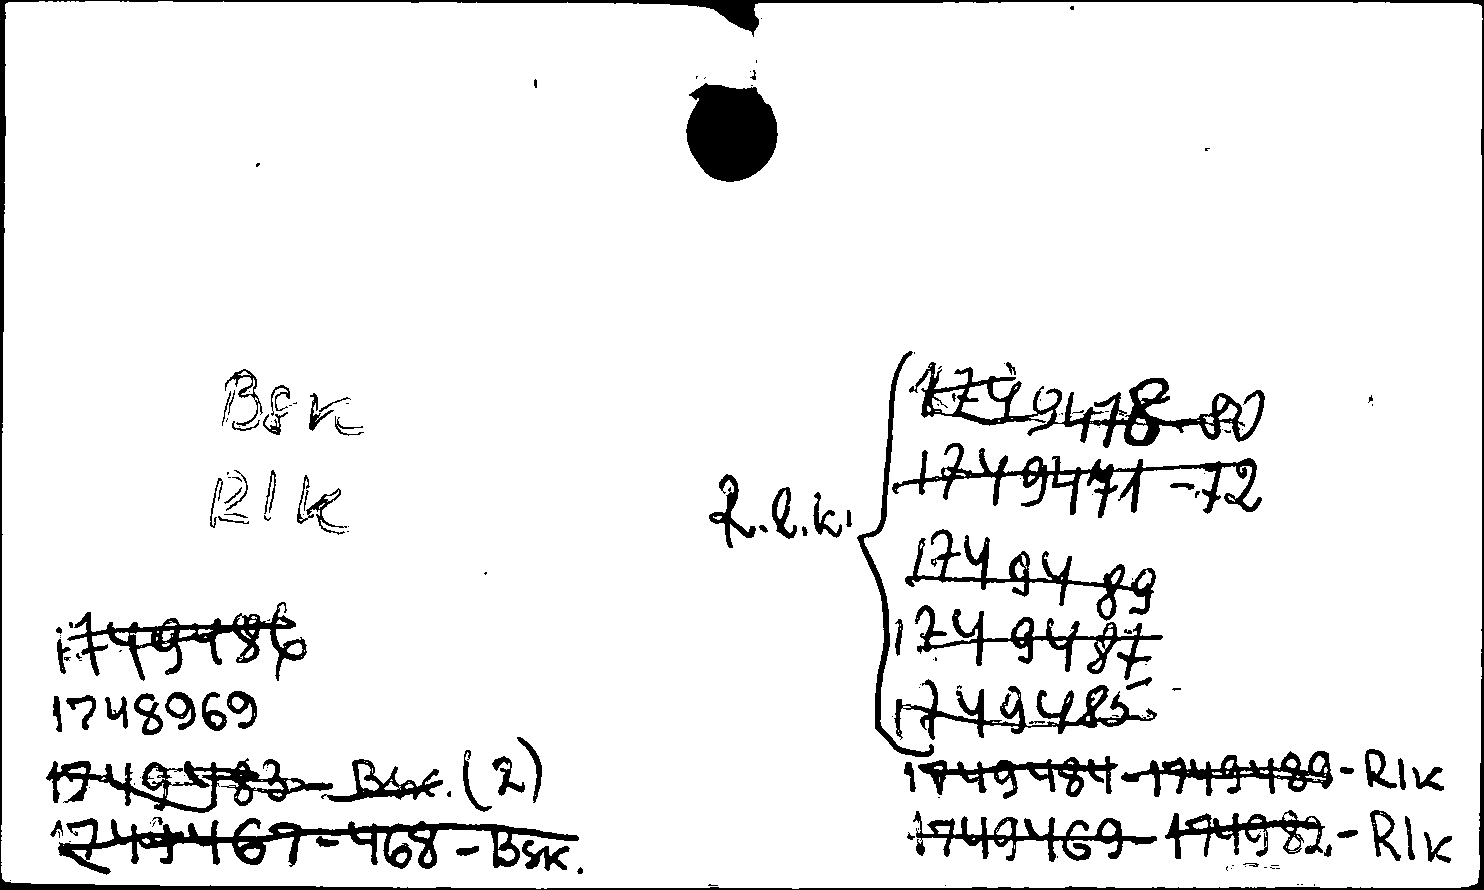 Bsk
Rlk
1749486
1748969
1749483 - Bsk. (2)
1749467-468-Bsk.
R.l.k.
1749478-80
1749471-72
1749489
1749487
1749485
1749484-1749489-Rlk
1749469-174982-Rlk